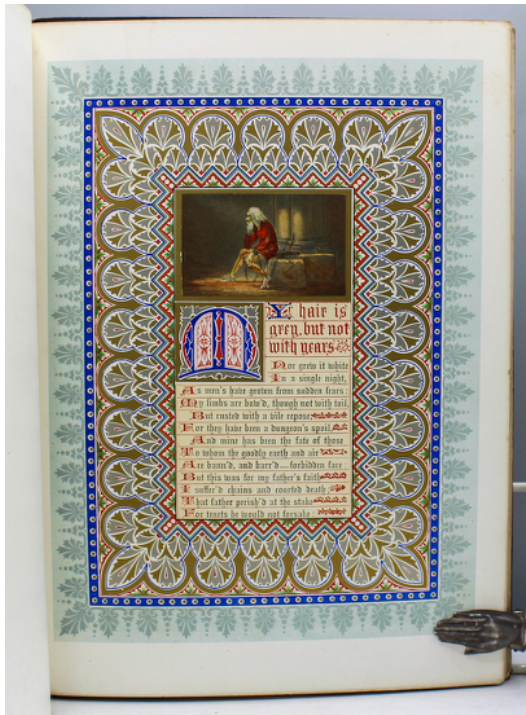 MY hair is
grey, but not
with years
Nor grew it white
In a single night,
As men's have grown from sudden fears:
My limbs are bow'd, though not with toil,
But rusted with a vile repose,
For they have been a dungeon's spoil,
And mine has been the fate of those
To whom the goodly earth and air
Are bann'd, and barr'd—forbidden fare:
But this was for my father's faith
I suffer'd chains and courted death;
That father perish'd at the stake
For tenets he would not forsake;